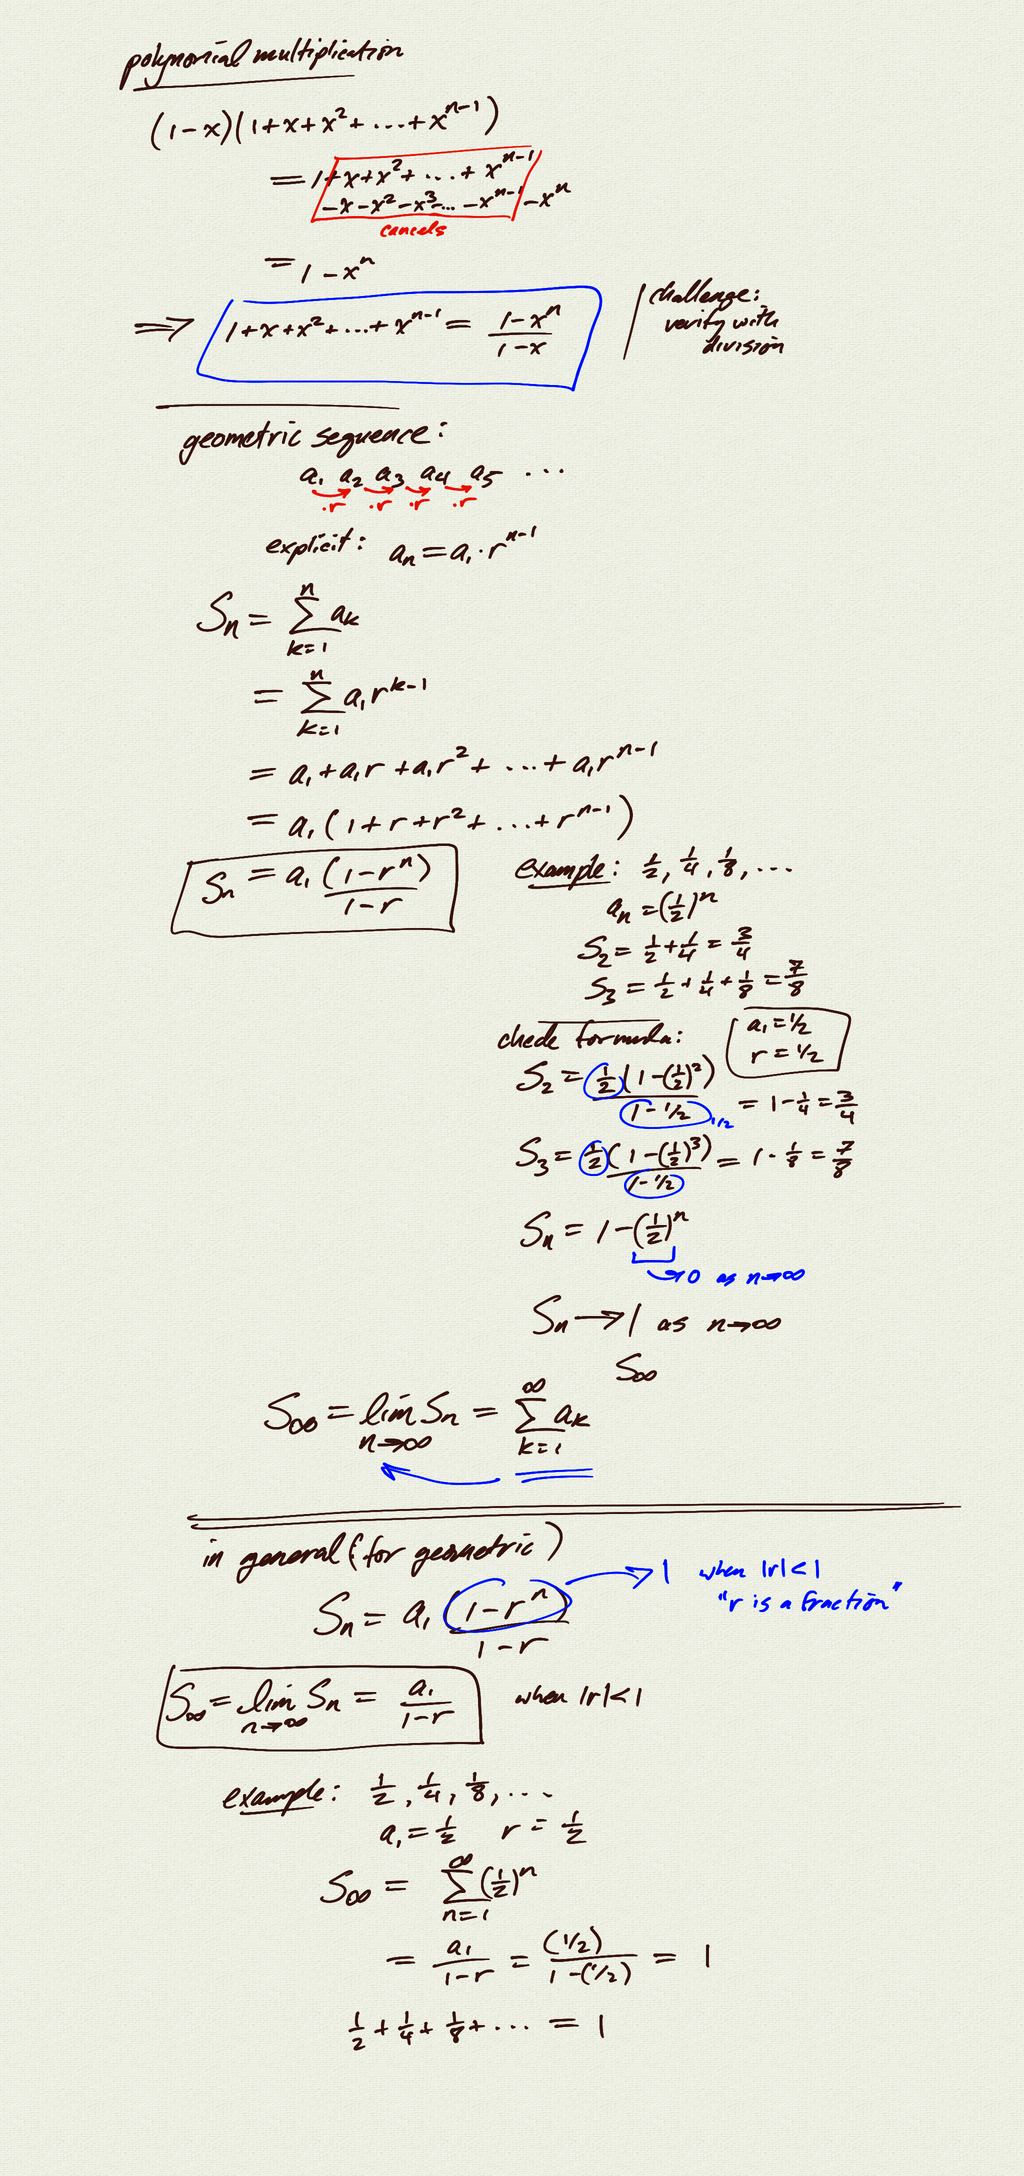 polynomial multiplication
(1-x)(1+x+x²+...+xⁿ⁻¹)
= 1+x+x²+...+xⁿ⁻¹
-x-x²-x³-...-xⁿ⁻¹-xⁿ
cancels
= 1-xⁿ
⟹ 1+x+x²+...+xⁿ⁻¹ = (1-xⁿ)/(1-x)
challenge:
verify with
division
geometric sequence:
a₁ a₂ a₃ a₄ a₅ ...
·r ·r ·r ·r
explicit: aₙ = a₁·rⁿ⁻¹
Sₙ = ∑_{k=1}^{n} aₖ
= ∑_{k=1}^{n} a₁rᵏ⁻¹
= a₁+a₁r+a₁r²+...+a₁rⁿ⁻¹
= a₁(1+r+r²+...+rⁿ⁻¹)
Sₙ = a₁(1-rⁿ)/(1-r)
example: 1/2, 1/4, 1/8, ...
aₙ = (1/2)ⁿ
S₂ = 1/2+1/4 = 3/4
S₃ = 1/2+1/4+1/8 = 7/8
check formula:
a₁ = 1/2
r = 1/2
S₂ = 1/2(1-(1/2)²)/(1-1/2) = 1-1/4 = 3/4
1/2
S₃ = 1/2(1-(1/2)³)/(1-1/2) = 1-1/8 = 7/8
Sₙ = 1-(1/2)ⁿ
→0 as n→∞
Sₙ → 1 as n→∞
S∞
S∞ = lim_{n→∞} Sₙ = ∑_{k=1}^{∞} aₖ
in general (for geometric)
Sₙ = a₁(1-rⁿ)/(1-r)
→ 1 when |r|<1
"r is a fraction"
S∞ = lim_{n→∞} Sₙ = a₁/(1-r) when |r|<1
example: 1/2, 1/4, 1/8, ...
a₁ = 1/2 r = 1/2
S∞ = ∑_{n=1}^{∞} (1/2)ⁿ
= a₁/(1-r) = (1/2)/(1-(1/2)) = 1
1/2+1/4+1/8+... = 1